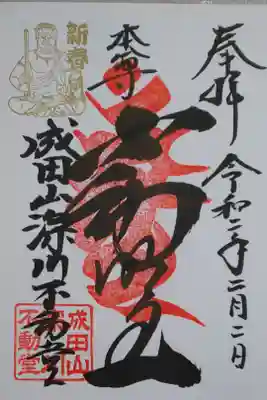 奉拝
令和二年二月二日
本尊
不動明王
新春
成田山深川不動堂
成田山
不動堂